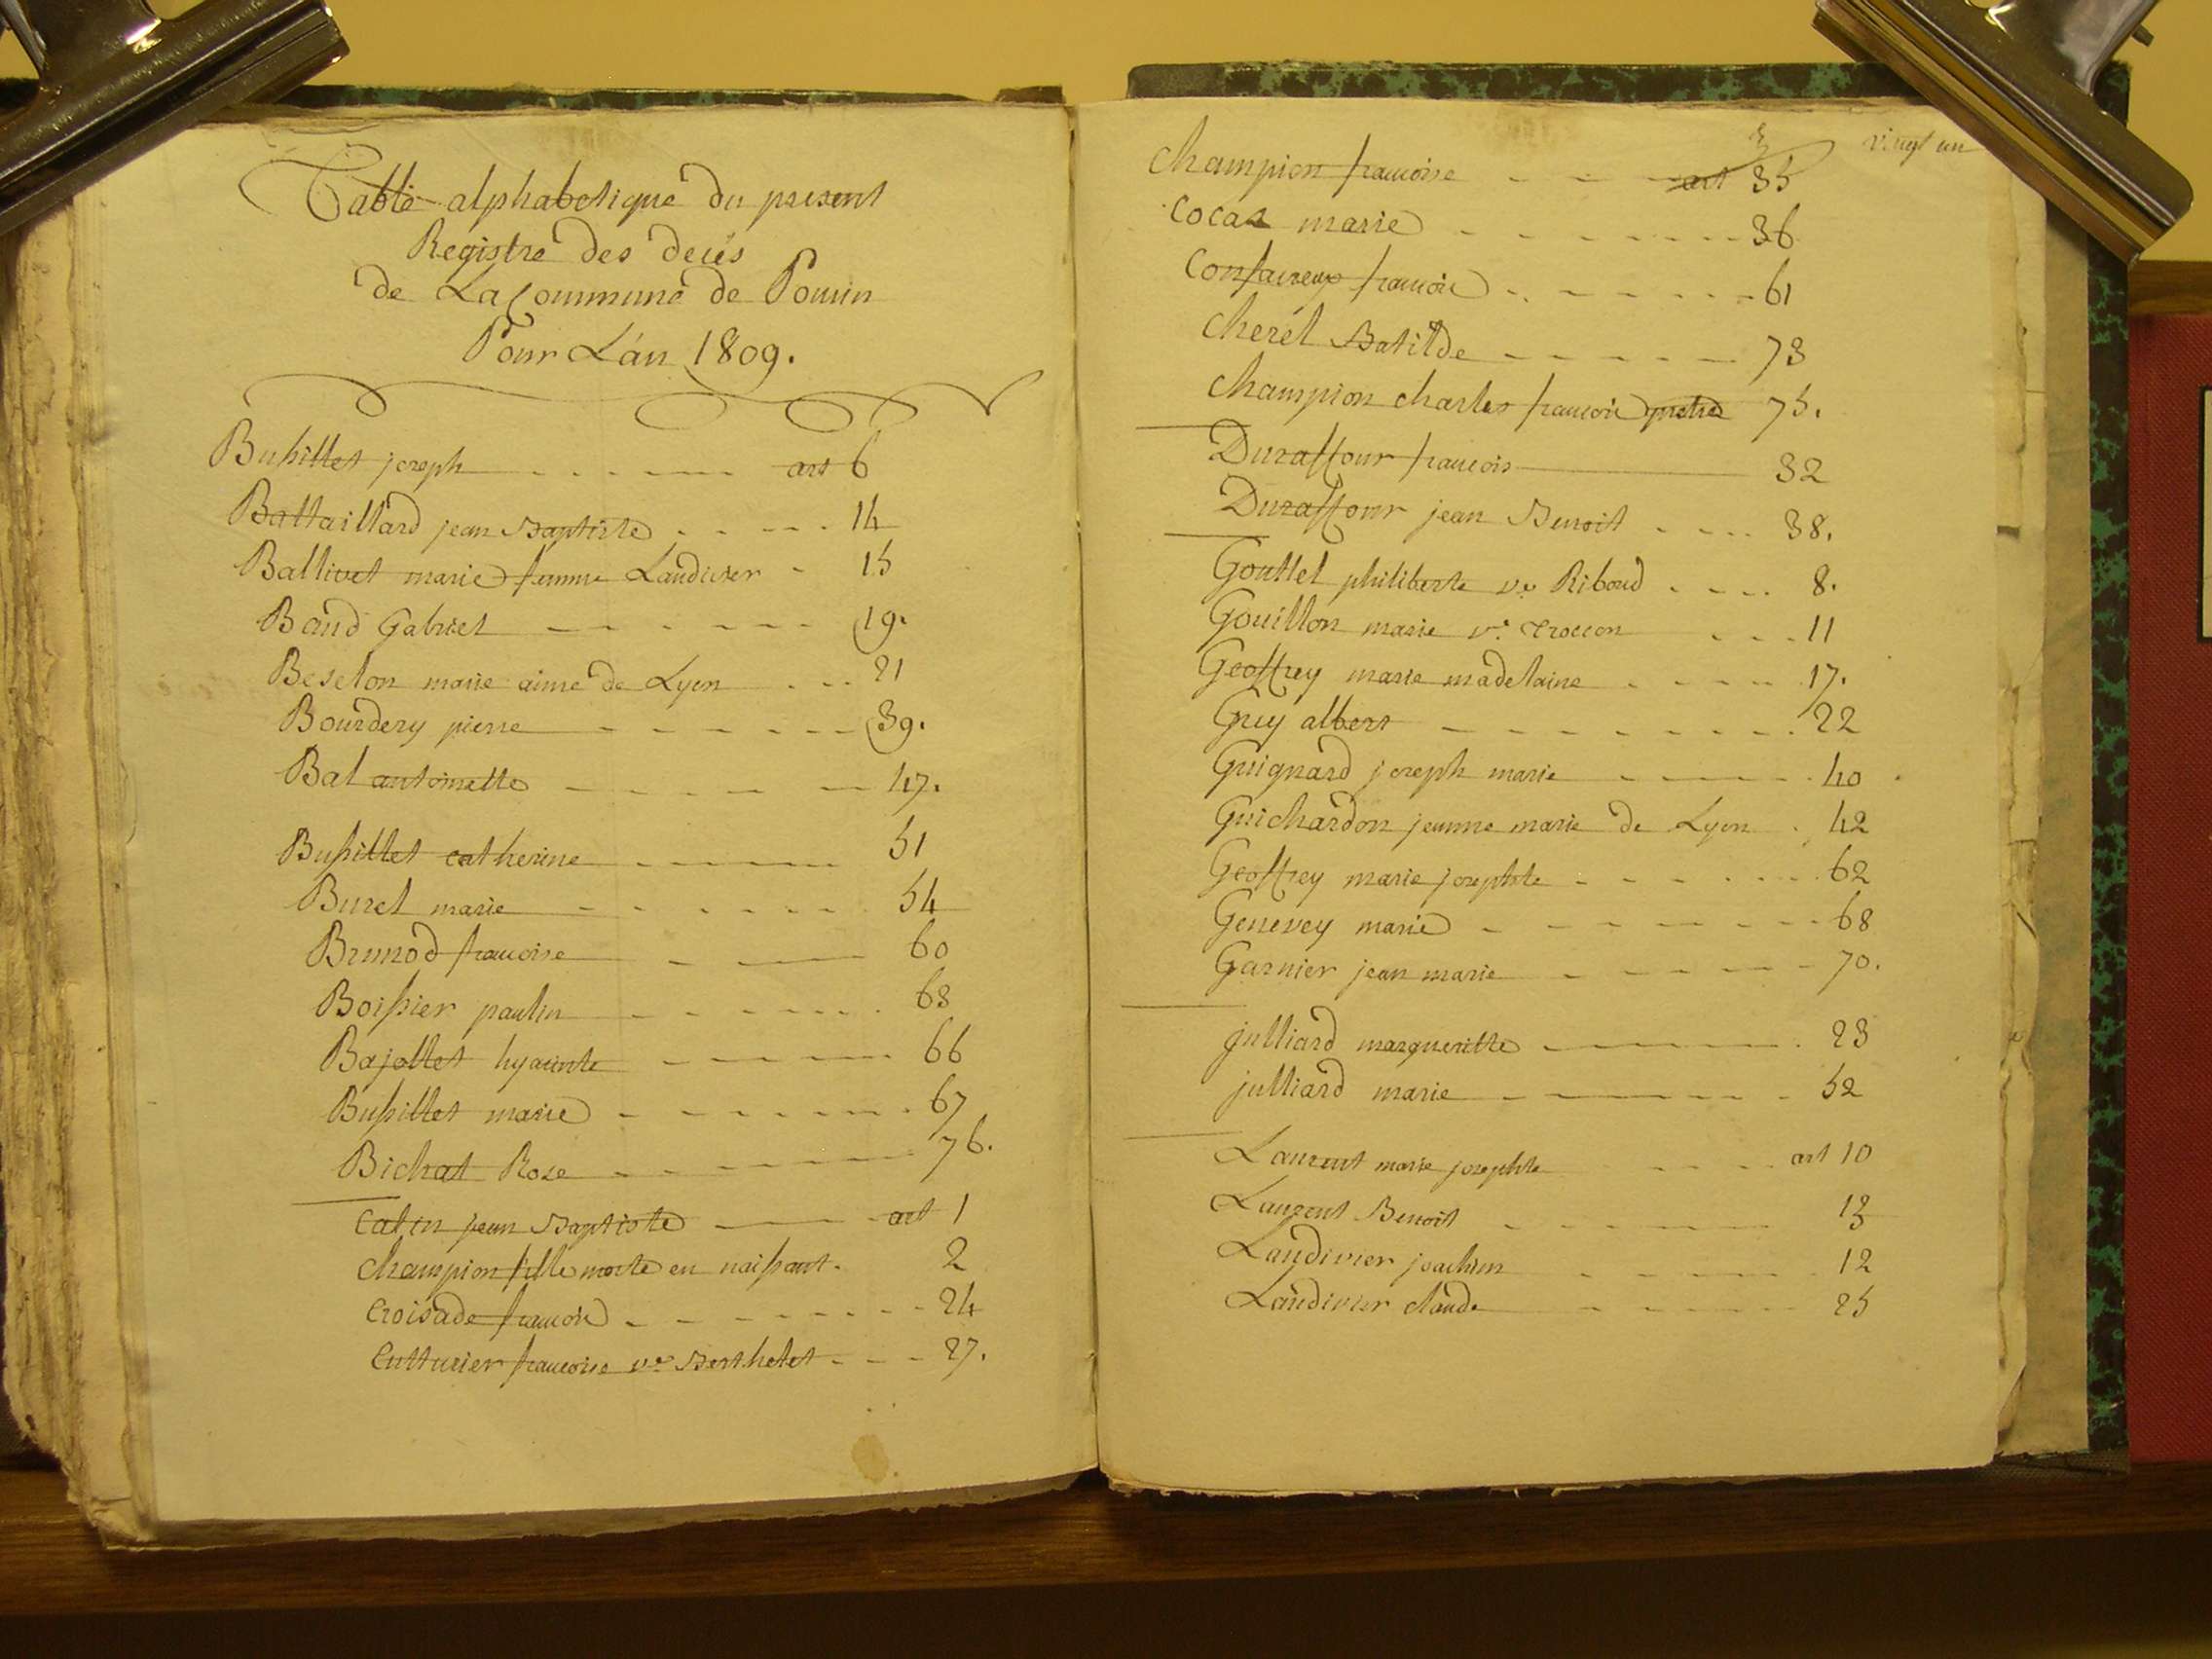 Table alphabetique du present
Registre des decés
de La Commune de Poncin
Pour L'an 1809.
Bussillet joseph art 6
Battaillard jean Baptiste 14
Ballivet marie femme Landivier 15
Baud Gabriel 19.
Beselon marie aimé de Lyon 21
Bourdery pierre 39.
Bal antoinette 47.
Bussillet catherine 51
Buret marie 54
Brunod francoise 60
Boissier paulin 63
Bajollet hyacinte 66
Bussillet marie 67
Bichat Rose 76.
Catin jean Baptiste art 1
Champion fille morte en naissant. 2
Croisade francois 24
Cutturier francoise ve Berthelet 27.
vingt un
Champion francoise art 35
Cocas marie 36
francois 61
Cherél Batilde 73
Champion charles francois pretre 75.
Duraffour francois 32
Duraffour jean Benoit 38.
Gouttel philiberte ve Riboud 8.
Gouillon marie ve Croccon 11
Geoffrey marie madelaine 17.
Guy albert 22
Guignard joseph marie 40
Guichardon jeanne marie de Lyon 42
Geoffrey marie josephte 62
Genevey marie 68
Garnier jean marie 70.
julliard margueritte 23
julliard marie 52
Laurent marie josephte art 10
Laurent Benoit 13
Landivier joachim 12
Landivier claude 25